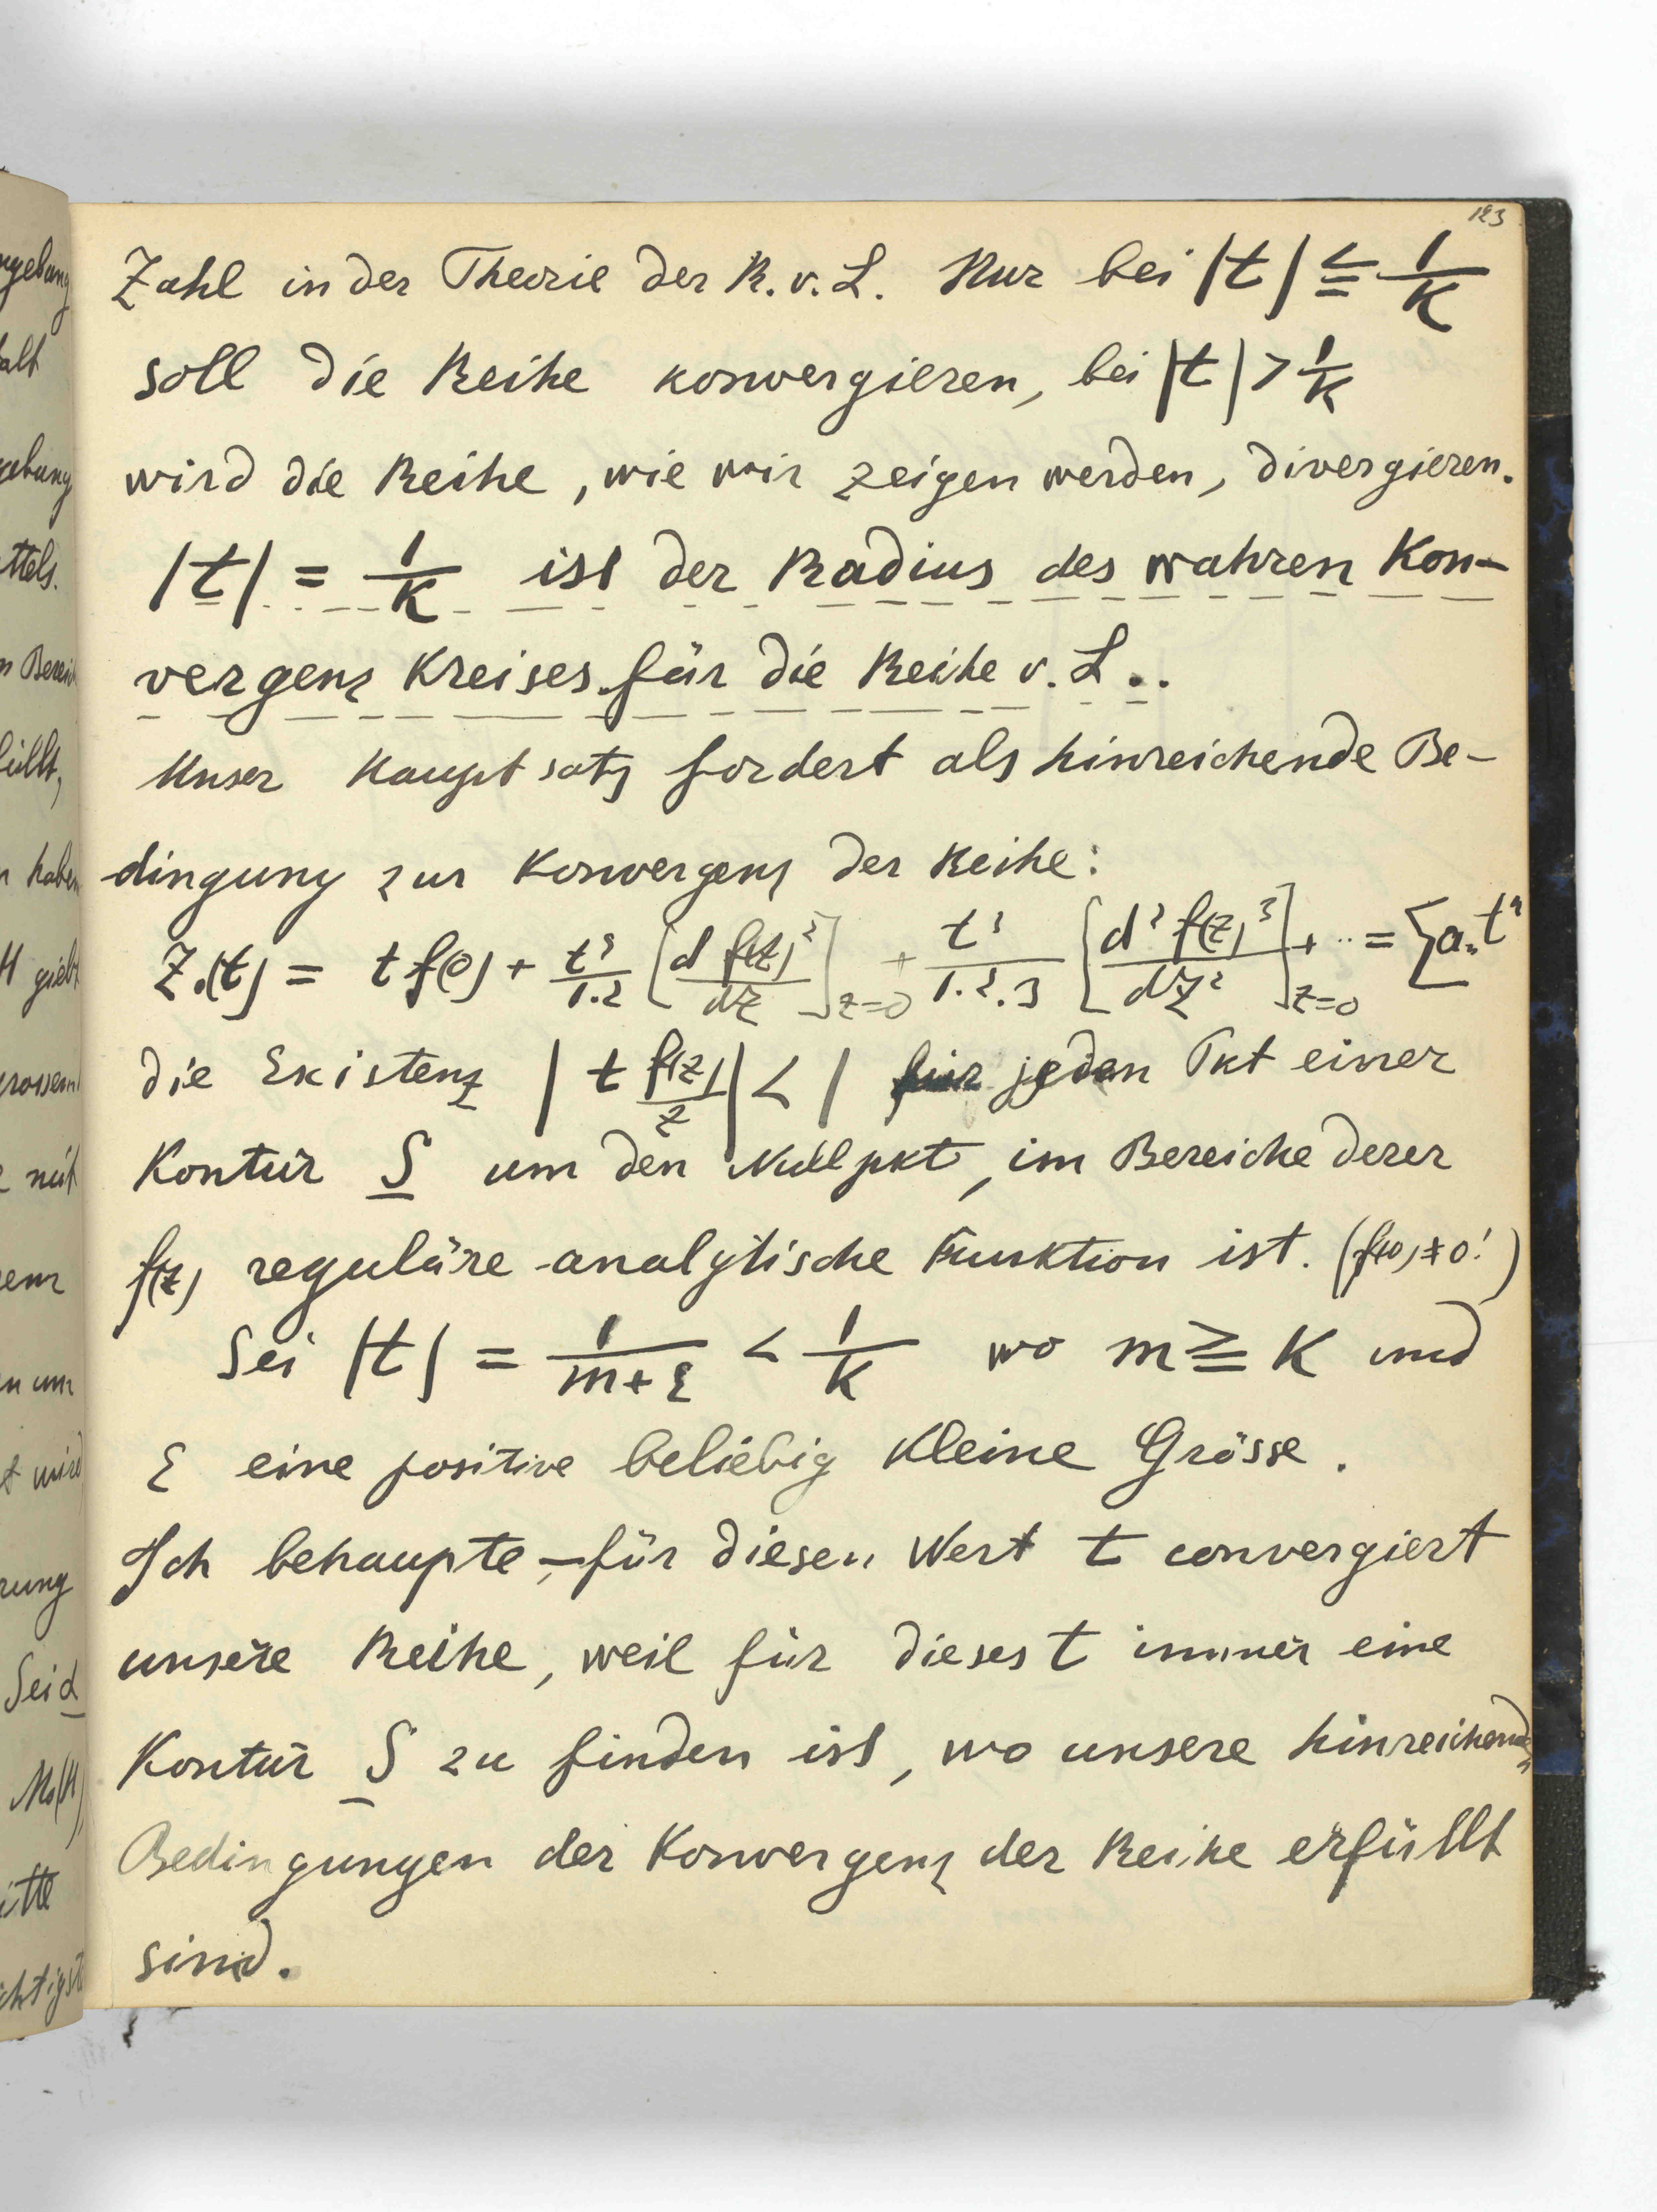 123
Zahl in der Theorie der R. v. L. Nur bei |t| ≦ 1/K
soll die Reihe konvergieren, bei |t| > 1/K
wird die Reihe, wie wir zeigen werden, divergieren.
|t| = 1/K ist der Radius des wahren Kon-
vergenz Kreises für die Reihe v. L..
Unser Hauptsatz fordert als hinreichende Be-
dingung zur Konvergenz der Reihe:
Z₀(t) = t f(0) + t²/1.2 [d f(z)²/dz]z=0 + t³/1.2.3 [d² f(z)³/dz²]z=0 + ·· = ∑aₙtⁿ
die Existenz | t f(z)/z | < 1 für jeden Pkt einer
Kontur S um den Nullpkt, im Bereiche derer
f(z) reguläre analytische Funktion ist. (f(0) ≠ 0!)
Sei |t| = 1/m+ε < 1/K wo m ≧ K und
ε eine positive beliebig kleine Grösse.
Ich behaupte, – für diesen Wert t convergiert
unsere Reihe, weil für dieses t immer eine
Kontur S zu finden ist, wo unsere hinreichenden
Bedingungen der Konvergenz der Reihe erfüllt
sind.